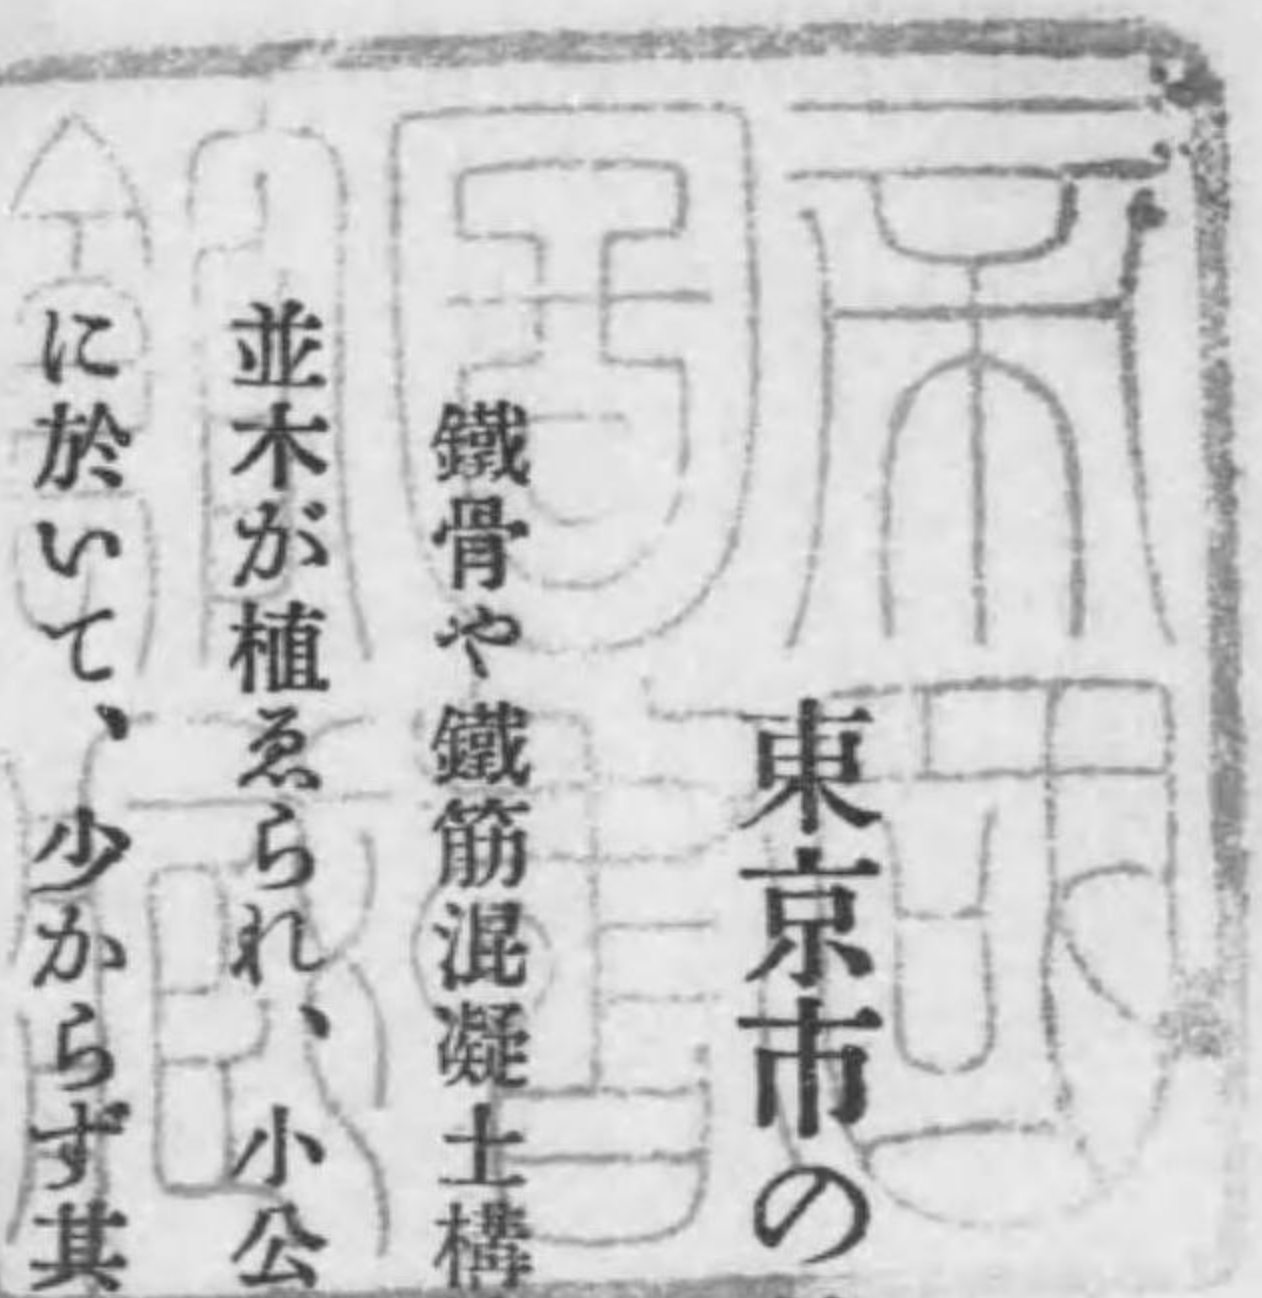 東京市の
鐵骨や鐵筋混凝土構
並木が植ゑられ、小公
に於いて、少からず其